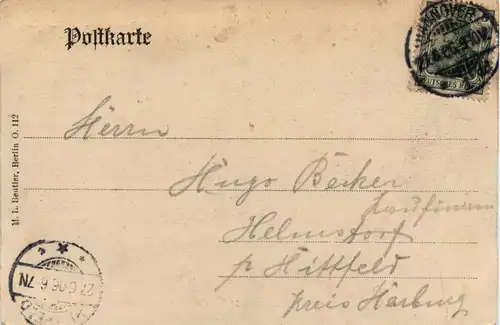 Postkarte
Herrn
Hugo Becker
Kaufmann
Helmstorf
p Hittfeld
Kreis Harburg
M. L. Beutler, Berlin O. 112
27.6.06. 6-7N